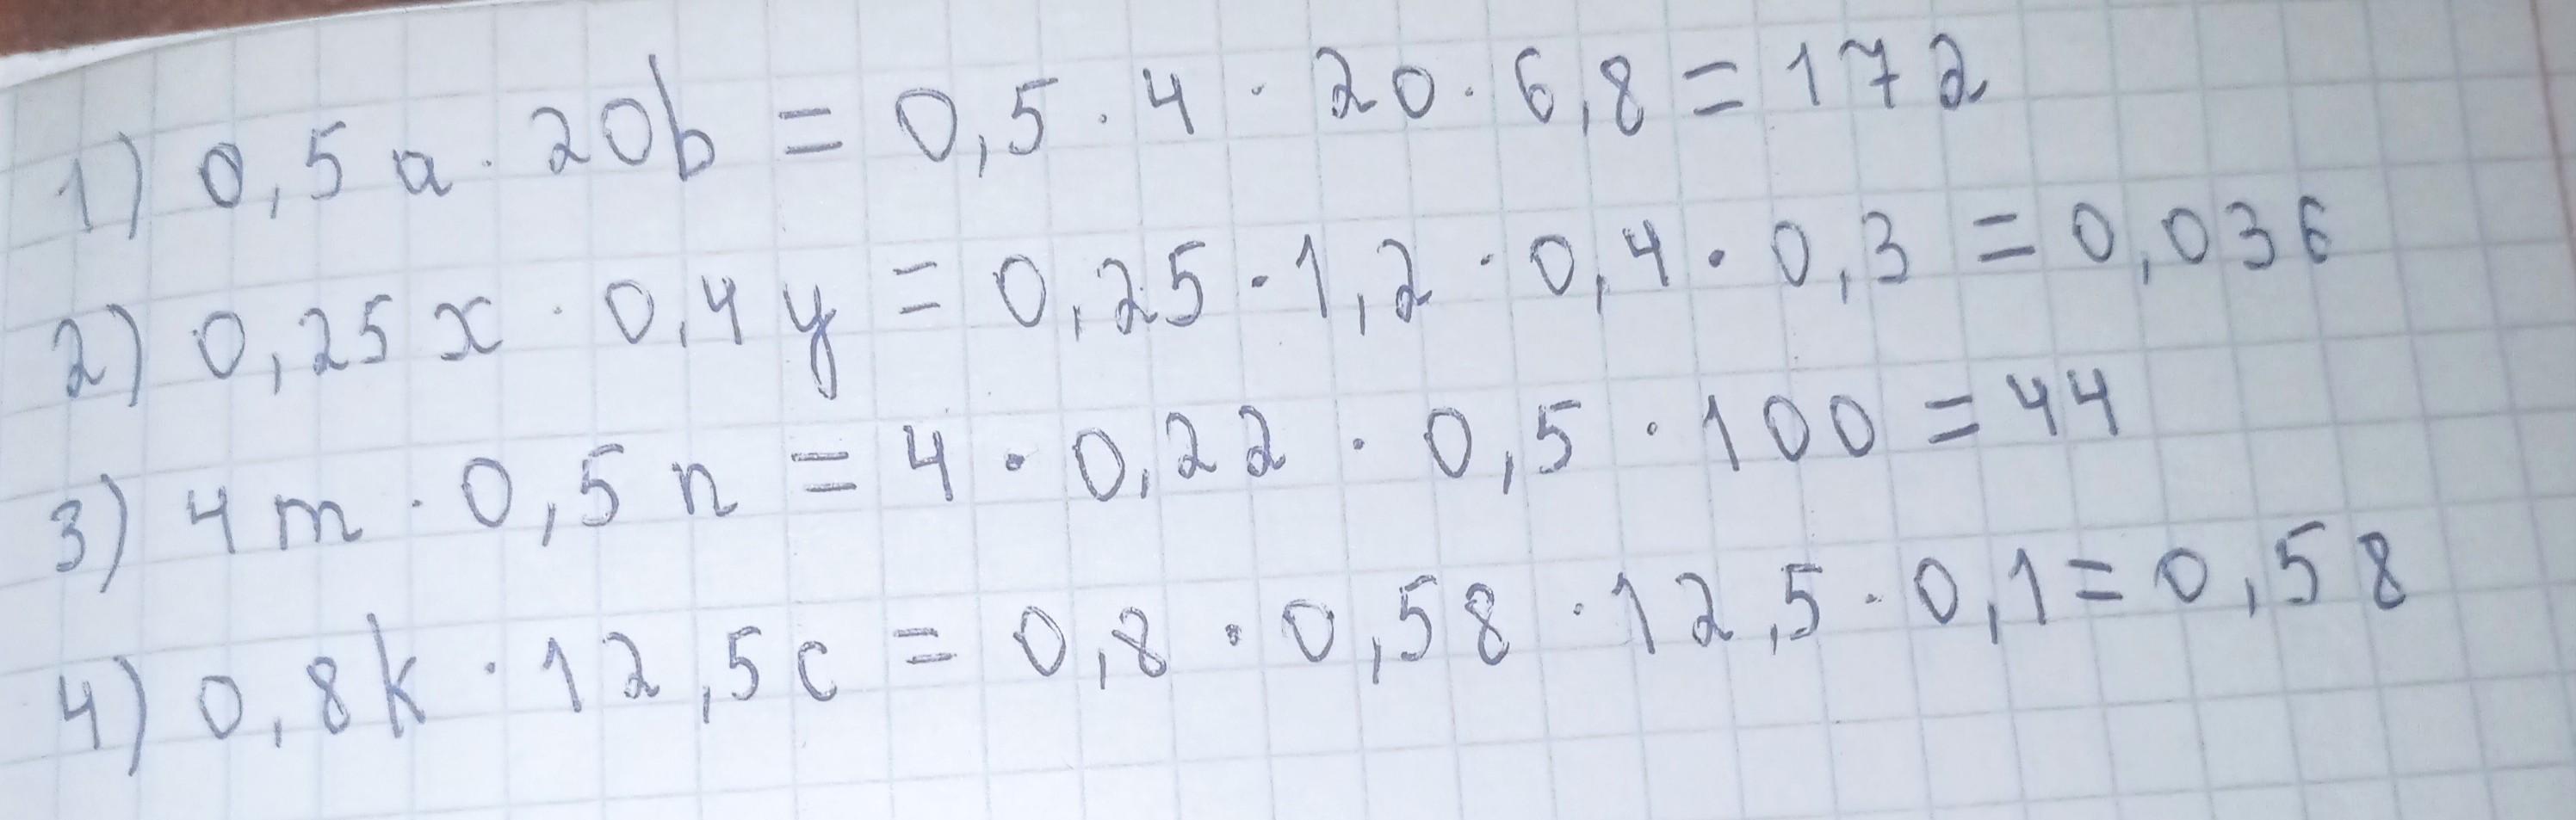 1) 0,5a · 20b = 0,5 · 4 · 20 · 6,8 = 172
2) 0,25x · 0,4y = 0,25 · 1,2 · 0,4 · 0,3 = 0,036
3) 4m · 0,5n = 4 · 0,22 · 0,5 · 100 = 44
4) 0,8k · 12,5c = 0,8 · 0,58 · 12,5 · 0,1 = 0,58